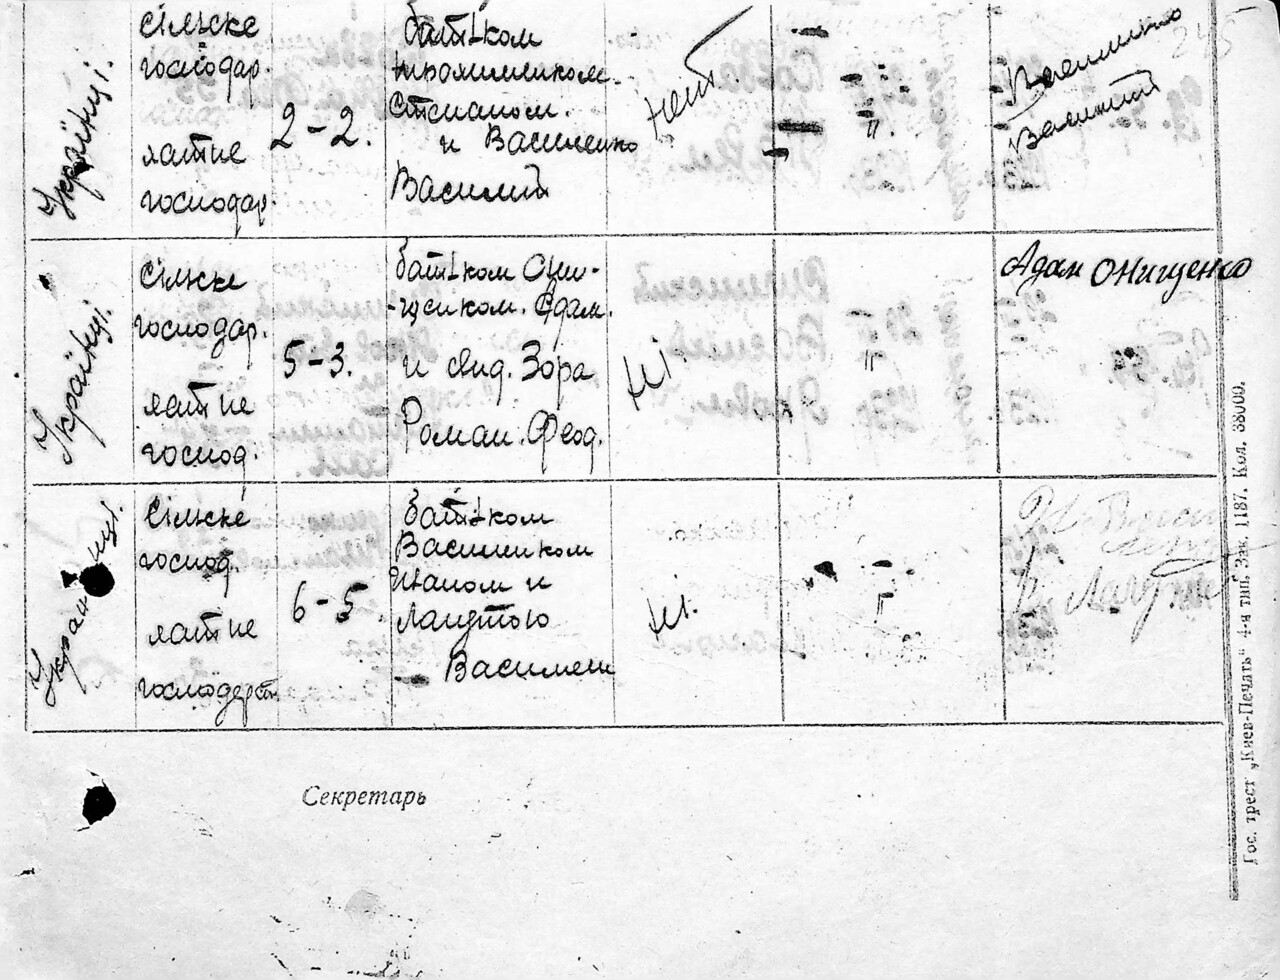 245
Українці.
Сільске
господар.
хатне
господар.
2-2.
батьком
Трохименком
Степаном.
и Василенко
Василий
нет
"
Василенко
Василий
Українці.
Сільске
господар.
хатне
господ.
5-3.
батьком Они-
щенком. Адам.
и свид. Зора
Роман. Феод.
Ні.
"
Адам Онищенко
Українці.
Сільске
господ.
хатне
господарст
6-5.
батьком
Василенком
Иваном и
Василен
Ні.
"
Секретарь
Гос. трест „Киев-Печать“ 4-я тип. Зак. 1187. Кол. 38000.